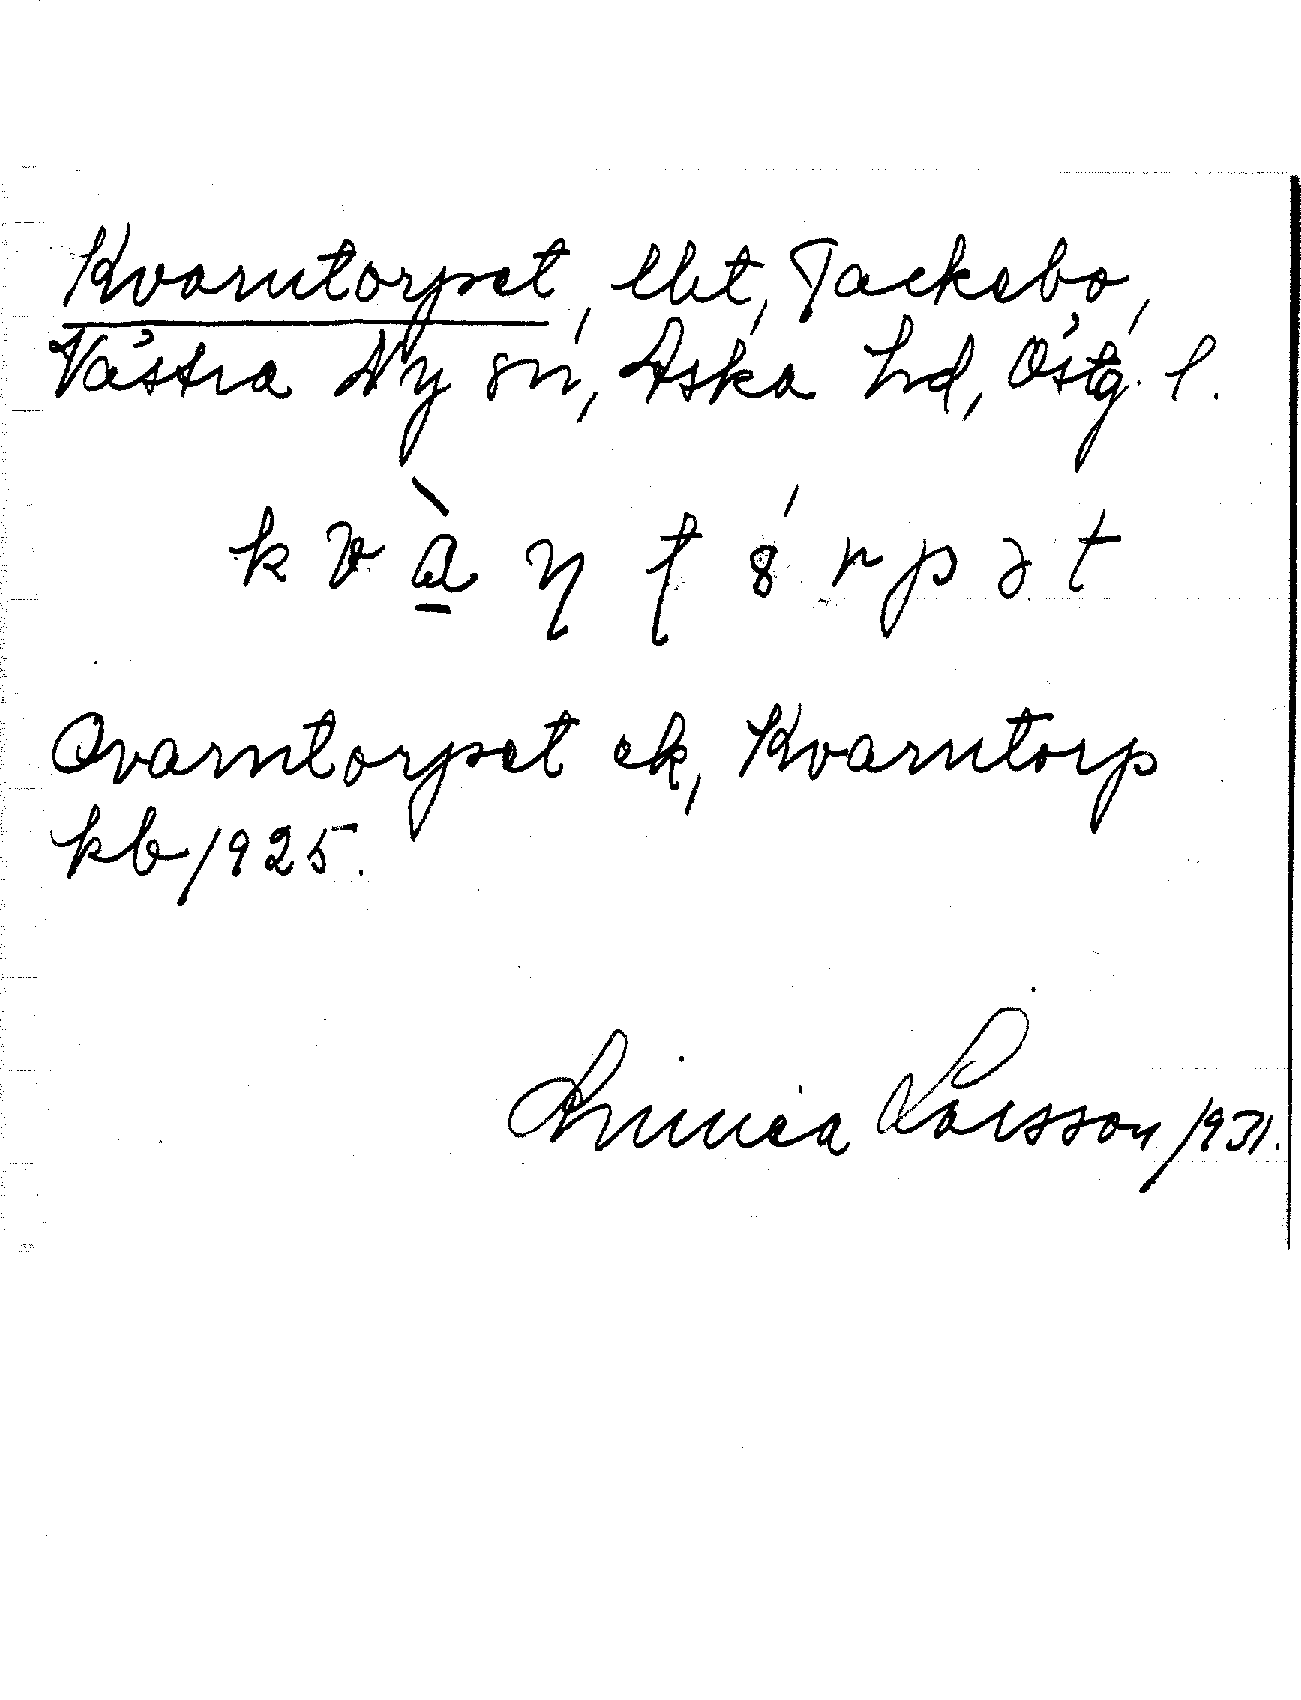 Kvarntorpet, lht, Tackebo,
Västra Ny sn, Aska hd, Östg. l.
k v à̱ ɳ ʈ ó r p ə t
Qvarntorpet ek, Kvarntorp
kb 1925.
Linnea Larsson 1931.